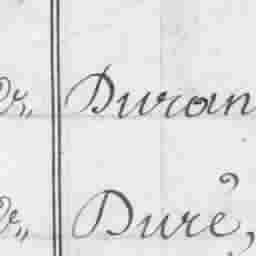 Dr,, Duran
Dr,, Duré,